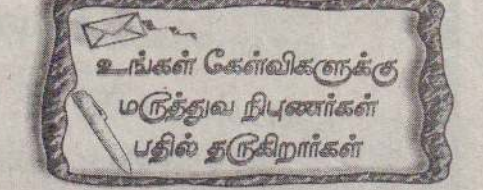 உங்கள் கேள்விகளுக்கு
மருத்துவ நிபுணர்கள்
பதில் தருகிறார்கள்